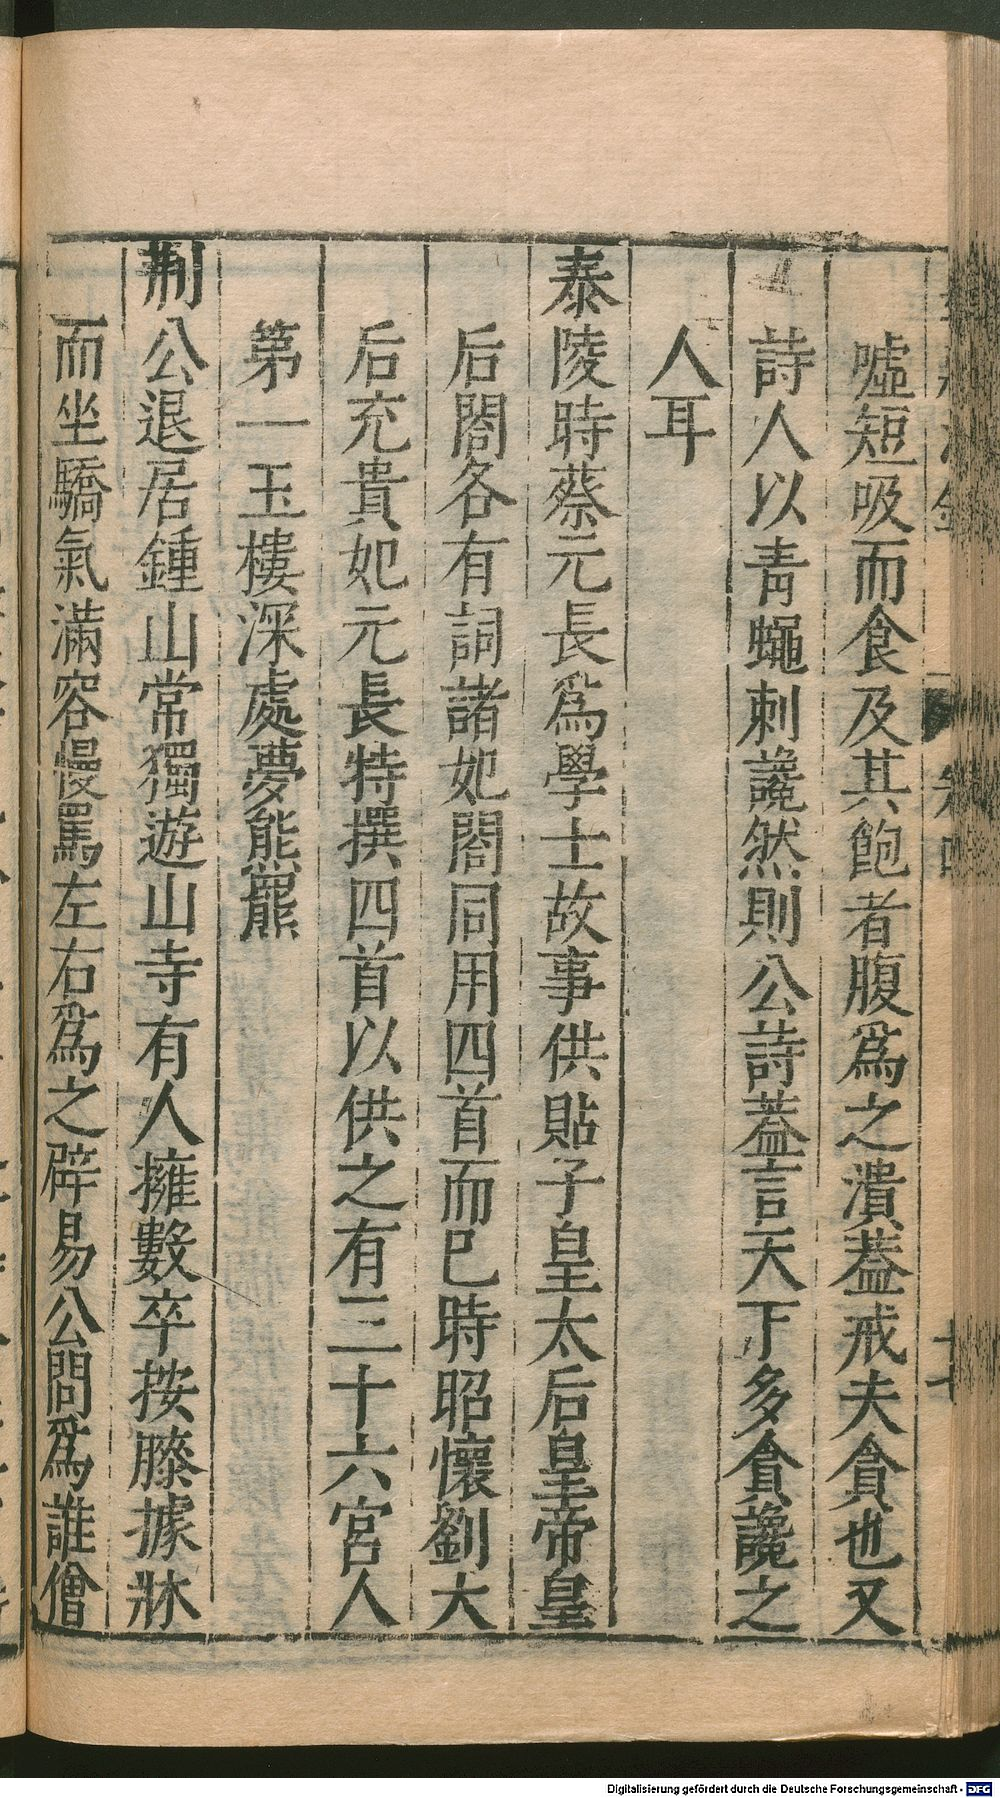 噓短吸而食及其飽者腹爲之潰葢戒夫貪也又
詩人以青蠅刺讒然則公詩葢言天下多貪讒之
人耳
泰陵時蔡元長爲學士故事供貼子皇太后皇帝皇
后閤各有詞諸妃閤同用四首而已時昭懷劉大
后充貴妃元長特撰四首以供之有三十六宮人
第一玉樓深處夢熊羆
荆公退居鍾山常獨遊山寺有人擁數卒按膝據牀
而坐驕氣滿容慢罵左右爲之辟易公問爲誰僧
卷四
十七
Digitalisierung gefördert durch die Deutsche Forschungsgemeinschaft - DFG